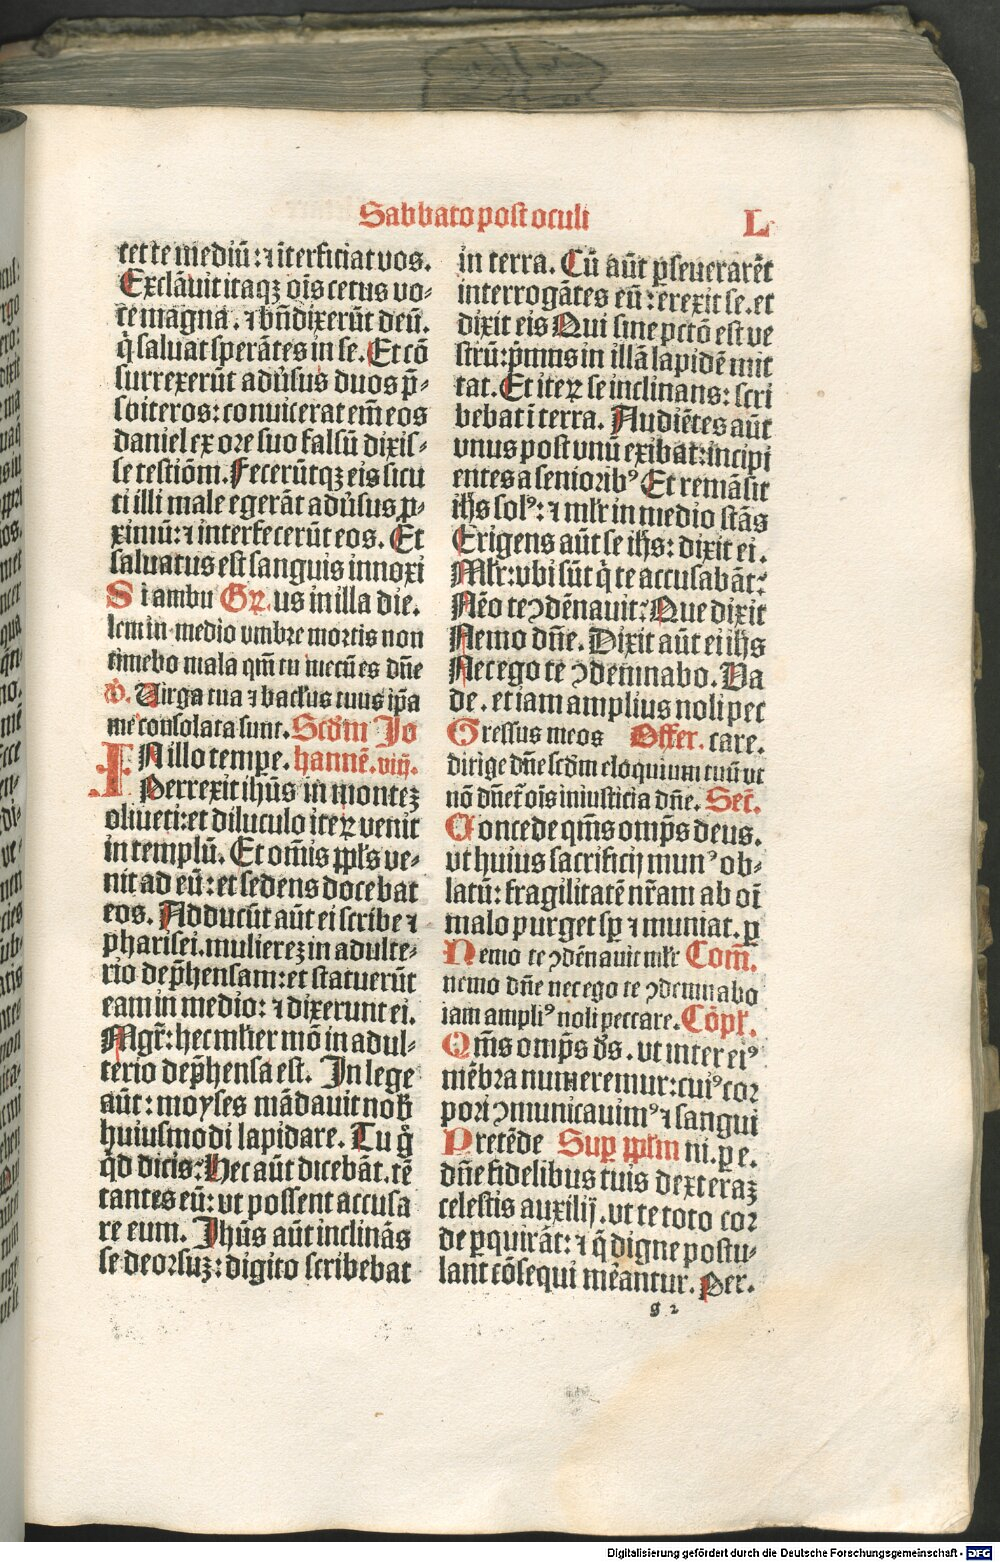 Sabbato post oculi
L
tet te mediū: ⁊ īterficiat vos.
Exclāuit itaqꝫ oīs cetus vo-
ce magna. ⁊ bn̄dixerūt deū.
q̇ saluat sperātes in se. Et cō
surrexerūt adūsus duos p̄s-
biteros: conuicerat em̄ eos
daniel ex ore suo falsū dixis-
se testiōm. Fecerūtqꝫ eis sicu
ti illi male egerāt adūsus ꝓ-
ximū: ⁊ interfecerūt eos. Et
saluatus est sanguis innoxi
Si ambu Gꝝ. us in illa die.
lem in medio vmbre mortis non
timebo mala qm̄ tu mecū es dn̄e
v̄. Uirga tua ⁊ bacl'us tuus ip̄a
me consolata sunt. Scd̄m Jo
IN illo tempe. hannē. viij.
Perrexit ihūs in montеꝫ
oliueti: et diluculo iteꝝ venit
in templū. Et om̄is ppl's ve-
nit ad eū: et sedens docebat
eos. Adducūt aūt ei scribe ⁊
pharisei. mulierēꝫ in adulte-
rio dep̄hensam: et statuerūt
eam in medio: ⁊ dixerunt ei.
Mgr̄: hec ml'ier mō in adul-
terio dep̄hensa est. In lege
aūt: moyses mādauit nob̄
huiusmodi lapidare. Tu g̊
qd̄ dicis: Hec aūt dicebāt. tē
tantes eū: vt possent accusa
re eum. Ihūs aūt inclinās
se deorsuꝫ: digito scribebat
in terra. Cū aūt ꝑseuerarēt
interrogātes eū: erexit se. et
dixit eis Qui sine pctō est ve
strū: p̄mus in illā lapidē mit
tat. Et iteꝝ se inclinans: scri
bebat ī terra. Audiētes aūt
vnus post vnū exibat: incipi
entes a seniorib⁹ Et remāsit
ih̄s sol⁹: ⁊ ml'r in medio stās
Erigens aūt se ih̄s: dixit ei.
Ml'r: vbi sūt q̇ te accusabāt:
Nēo te ꝯdēnauit: Que dixit
Nemo dn̄e. Dixit aūt ei ih̄s
Nec ego te ꝯdemnabo. Va
de. et iam amplius noli pec
Gressus meos Offer. care.
dirige dn̄e scd̄m eloquium tuū vt
nō dn̄et̄ oīs iniusticia dn̄e. Sec̄.
Concede qm̄s omp̄s deus.
vt huius sacrificij mun⁹ ob-
latū: fragilitatē nr̄am ab oī
malo purget sꝑ ⁊ muniat. ꝑ
Nemo te ꝯdēnauit ml'r Com̄.
nemo dn̄e nec ego te ꝯdemnabo
iam ampli⁹ noli peccare. Cōpl'.
Qm̄s omp̄s ds̄. vt inter ei⁹
mēbra numeremur: cui⁹ cor
pori ꝯmunicauim⁹ ⁊ sangui
Pretēde Suꝑ ppl'm ni. ꝑ e.
dn̄e fidelibus tuis dexteraꝫ
celestis auxilij. vt te toto cor
de ꝑquirāt: ⁊ q̄ digne postu-
lant cōsequi mēantur. Per.
g 2
Digitalisierung gefördert durch die Deutsche Forschungsgemeinschaft - DFG